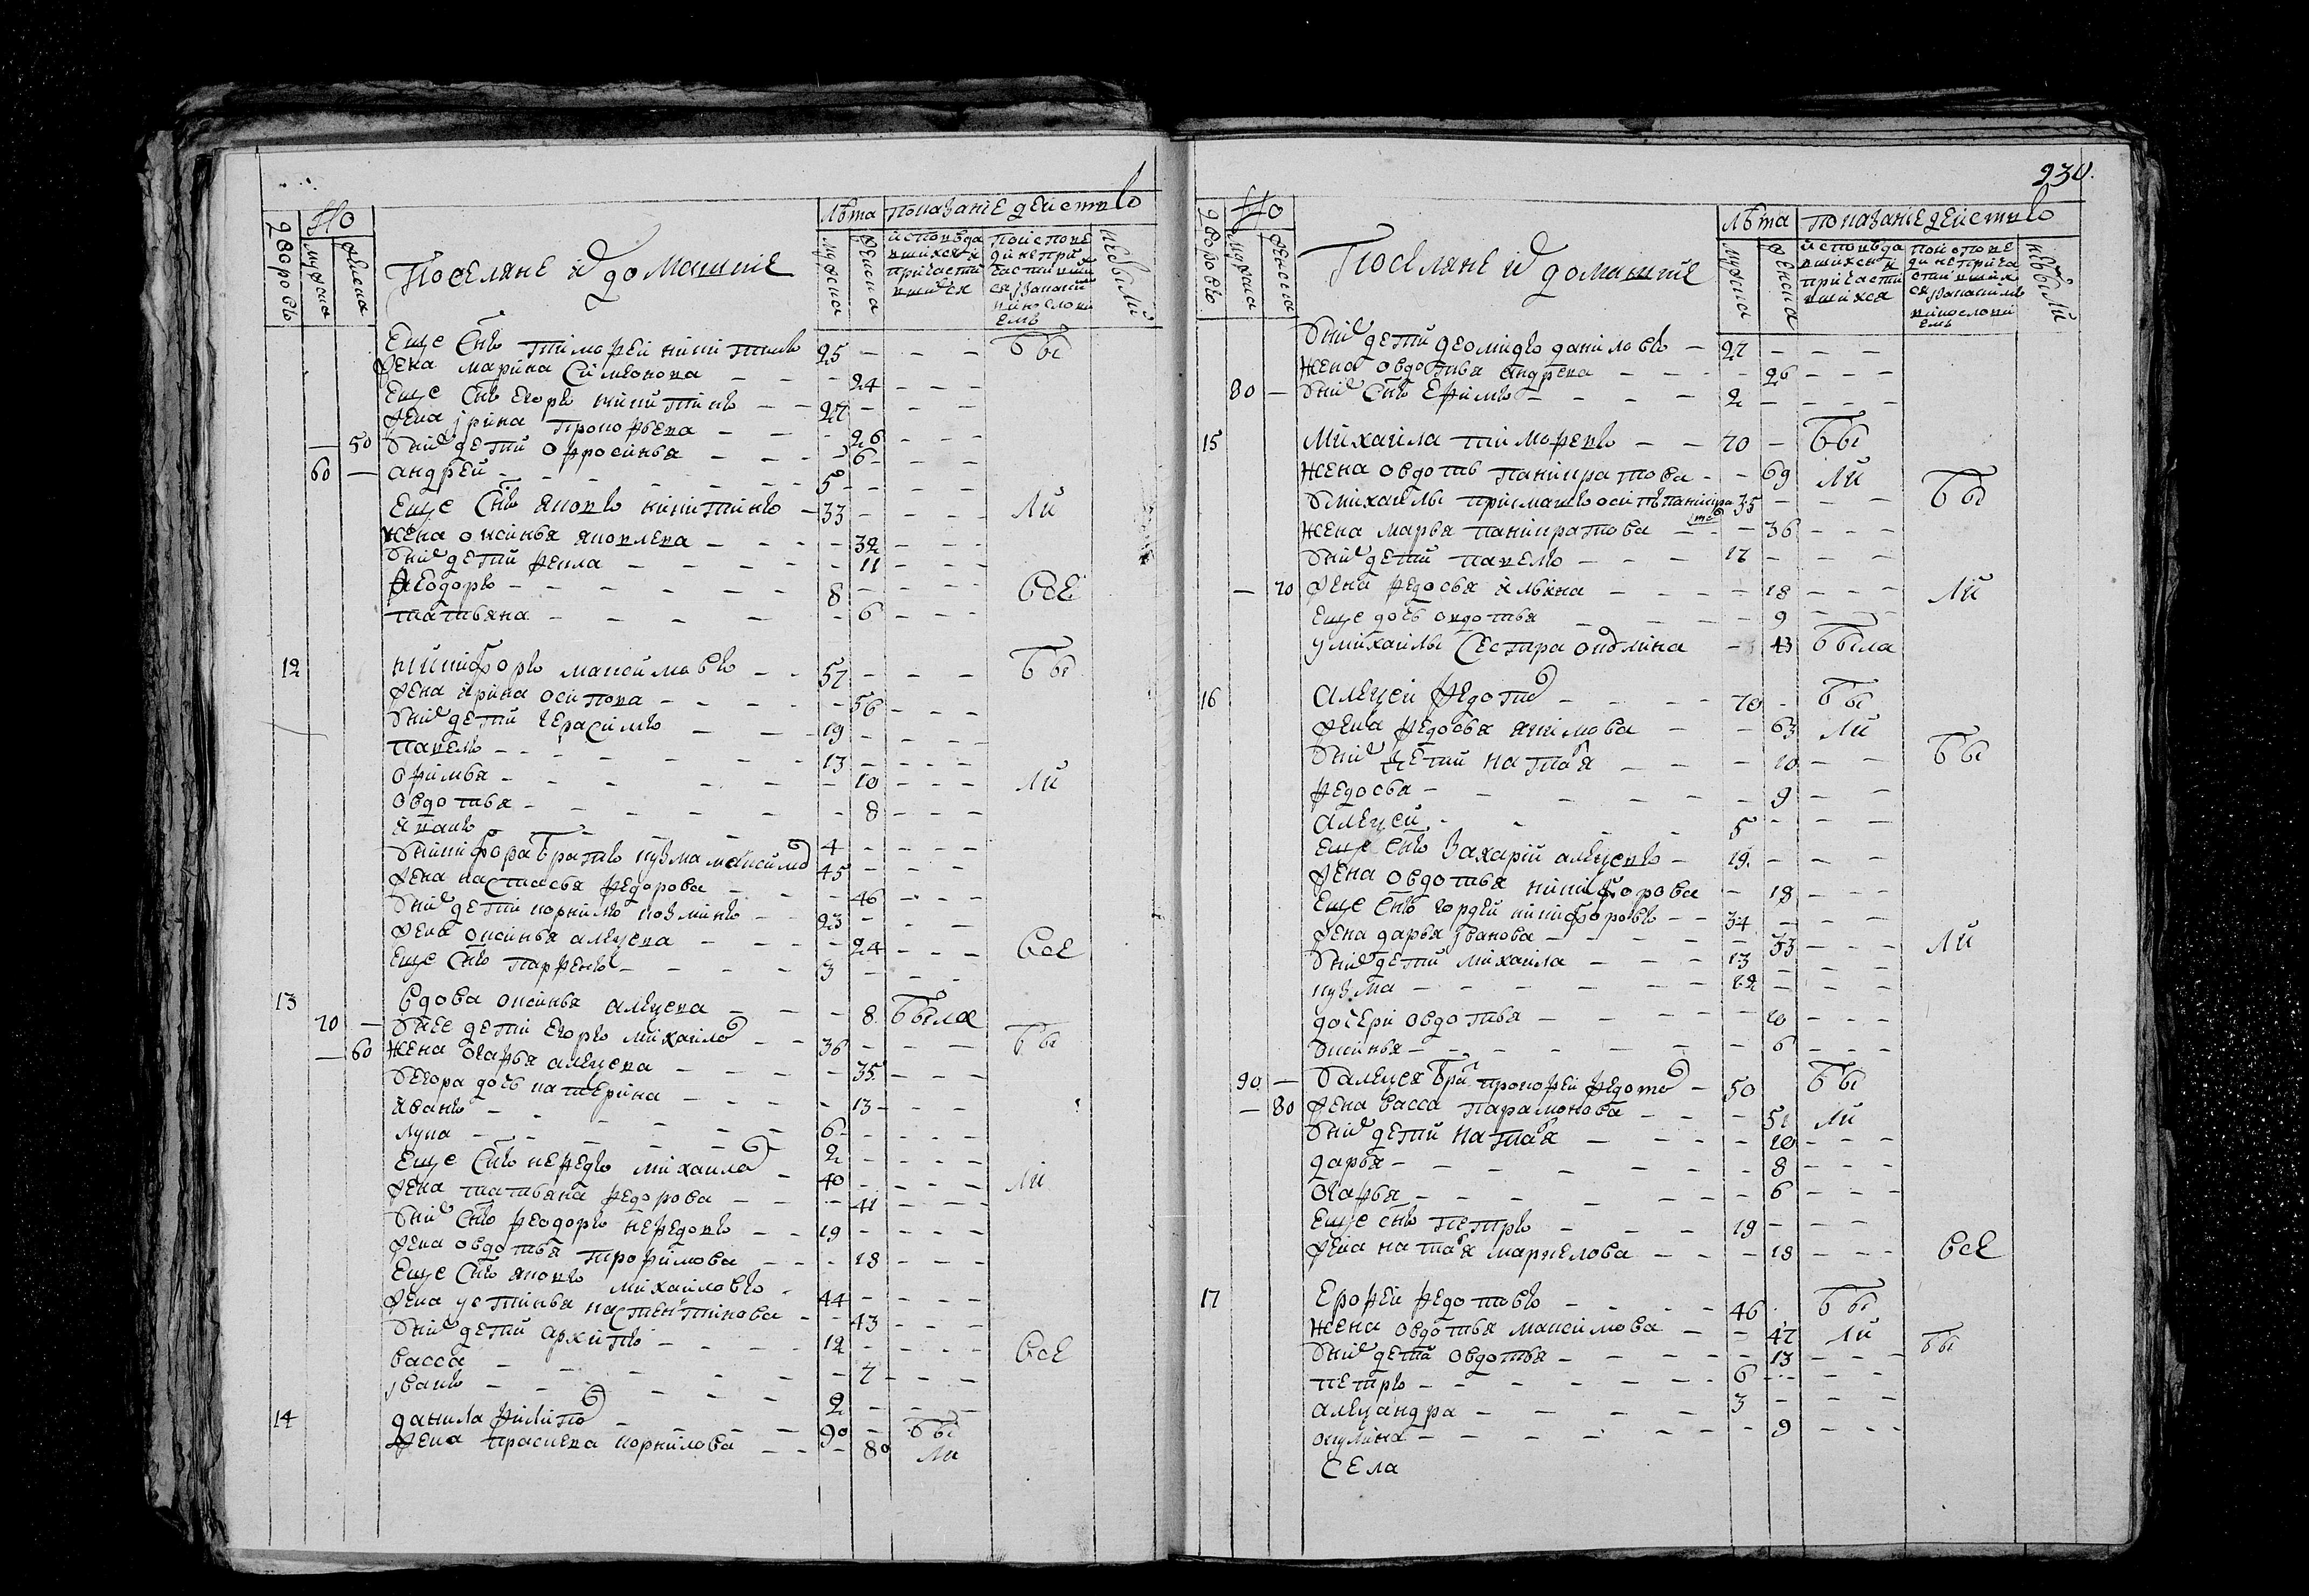 Но
Лѣта показанiе действъ
дворовъ
мужска
женска
Поселяне и домашнiе
мужска
женска
исповѣда вшихся и причасти вшихся
поиспове ди непри частивши ся законiи
невыли
Еще Снъ тимофеи никитинъ 25 - - - Бы
жена марина Симионова - - - 24 - - -
Еще Снъ Егоръ никитинъ - - 27 - - -
жена ирина прокофьева - - 26 - - -
- 50 Ѿних дети офросинья - - - 6 - - -
60 - андреи - - - - 5 - - -
Еще Снъ яковъ никитинъ - 33 - - - Ли
жена оксинья яковлева - - - 32 - - -
Ѿних дети фекла - - - - 11 - - -
феодоръ - - - - - 8 - - - Все
татьяна - - - - - 6 - - -
12 никифоръ максимовъ - - 57 - - - Бы
жена ирина осипова - - - 56 - - -
Ѿних дети герасимъ - - 19 - - -
павелъ - - - - - 13 - - -
офимья - - - - - 10 - - - Ли
овдотья - - - - - 8 - - -
иванъ - - - - 4 - - -
Ѿникифора братъ кузма максимо 45 - - -
жена настасья федорова - - - 46 - - -
Ѿних дети корнилъ козминъ - - 23 - - -
жена оксинья алексева - - - 24 - - - Все
Еще Снъ парфенъ - - - - 3 - - -
13 вдова оксинья алексева - - - 8. была
70 - Ѿнее дети егоръ михаило - - 36 - - - Бы
- 60 жена огафья алексева - - - 35 - - -
Ѿегора дочь катерина - - - 13 - - -
иванъ - - - - - 6 - - -
лука - - - - - 2 - - -
Еще Снъ нефедъ михаило - 40 - - - Ли
жена татьяна федорова - - - 41 - - -
Ѿних Снъ феодоръ нефедовъ - - 19 - - -
жена овдотья трофимова - - - 18 - - -
Еще Снъ яковъ михаиловъ - 44 - - -
жена устинья настентинова - - 43 - - -
Ѿних дети архипъ - - - 12 - - - Все
васса - - - - - 7 - - -
иванъ - - - - 2 - - -
14 данила филипо - - - 90 - Бы
жена прасковя корнилова - - - 80 Ли
230.
Но
Лѣта показанiе действъ
дворовъ
мужска
женска
Поселяне и домашнiе
мужска
женска
исповѣда вшихся и причасти вшихся
невыли
Ѿних дети деомидъ даниловъ - 27 - - -
жена овдотья андрева - - - 26 - - -
80 - Ѿних Снъ ефимъ - - - - 2 - - -
15 Михаила тимофевъ - - 70 - Бы
жена овдоть панкратова - - 69 Ли
Ѿмихаилы приимакъ осипъ панкра 35 - - - Бы
жена марья панкратова - - 36 - - -
Ѿних дети павелъ - - - 17 - - -
- 70 жена федосья ильина - - - 18 - - - Ли
Еще дочь овдотья - - - 9 - - -
умихаилы Сестра окулина - 43 была
16 алексеи федото - - - - 70 - Бы
жена федосья якимова - - 63 Ли
Ѿних дети наталя - - - 10 - - Бы
федосья - - - - - 9 - -
алексеи - - - - 5 - - -
Еще Снъ Захарiи алексевъ - 19. - - -
жена овдотья никифорова - 18 - - -
Еще Снъ гордеи никифоровъ - - 34 - - -
жена дарья иванова - - - - 33 - - - Ли
Ѿних дети михаила - - - 13 - - -
кузма - - - - - 12 - - -
дочери овдотья - - - - - 10 - - -
оксинья - - - - - 6 - - -
90 - Ѿалексея бра прокофеи федото - 50 Бы
- 80 жена васса парамонова - - - 51 Ли
Ѿних дети наталя - - - - 10 - - -
дарья - - - - - 8 - - -
огафья - - - - - 6 - - -
Еще снъ петръ - - - 19 - - -
жена наталя маркелова - - - 18 - - - Все
17 Ерофеи федотовъ - - - 46 . Бы
жена овдотья максимова - - 47 Ли Бы
Ѿних дети овдотья - - - - 13 - - -
петръ - - - - - 6 - - -
александра - - - - 3 - - -
окулина - - - - - 9 - - -
Села